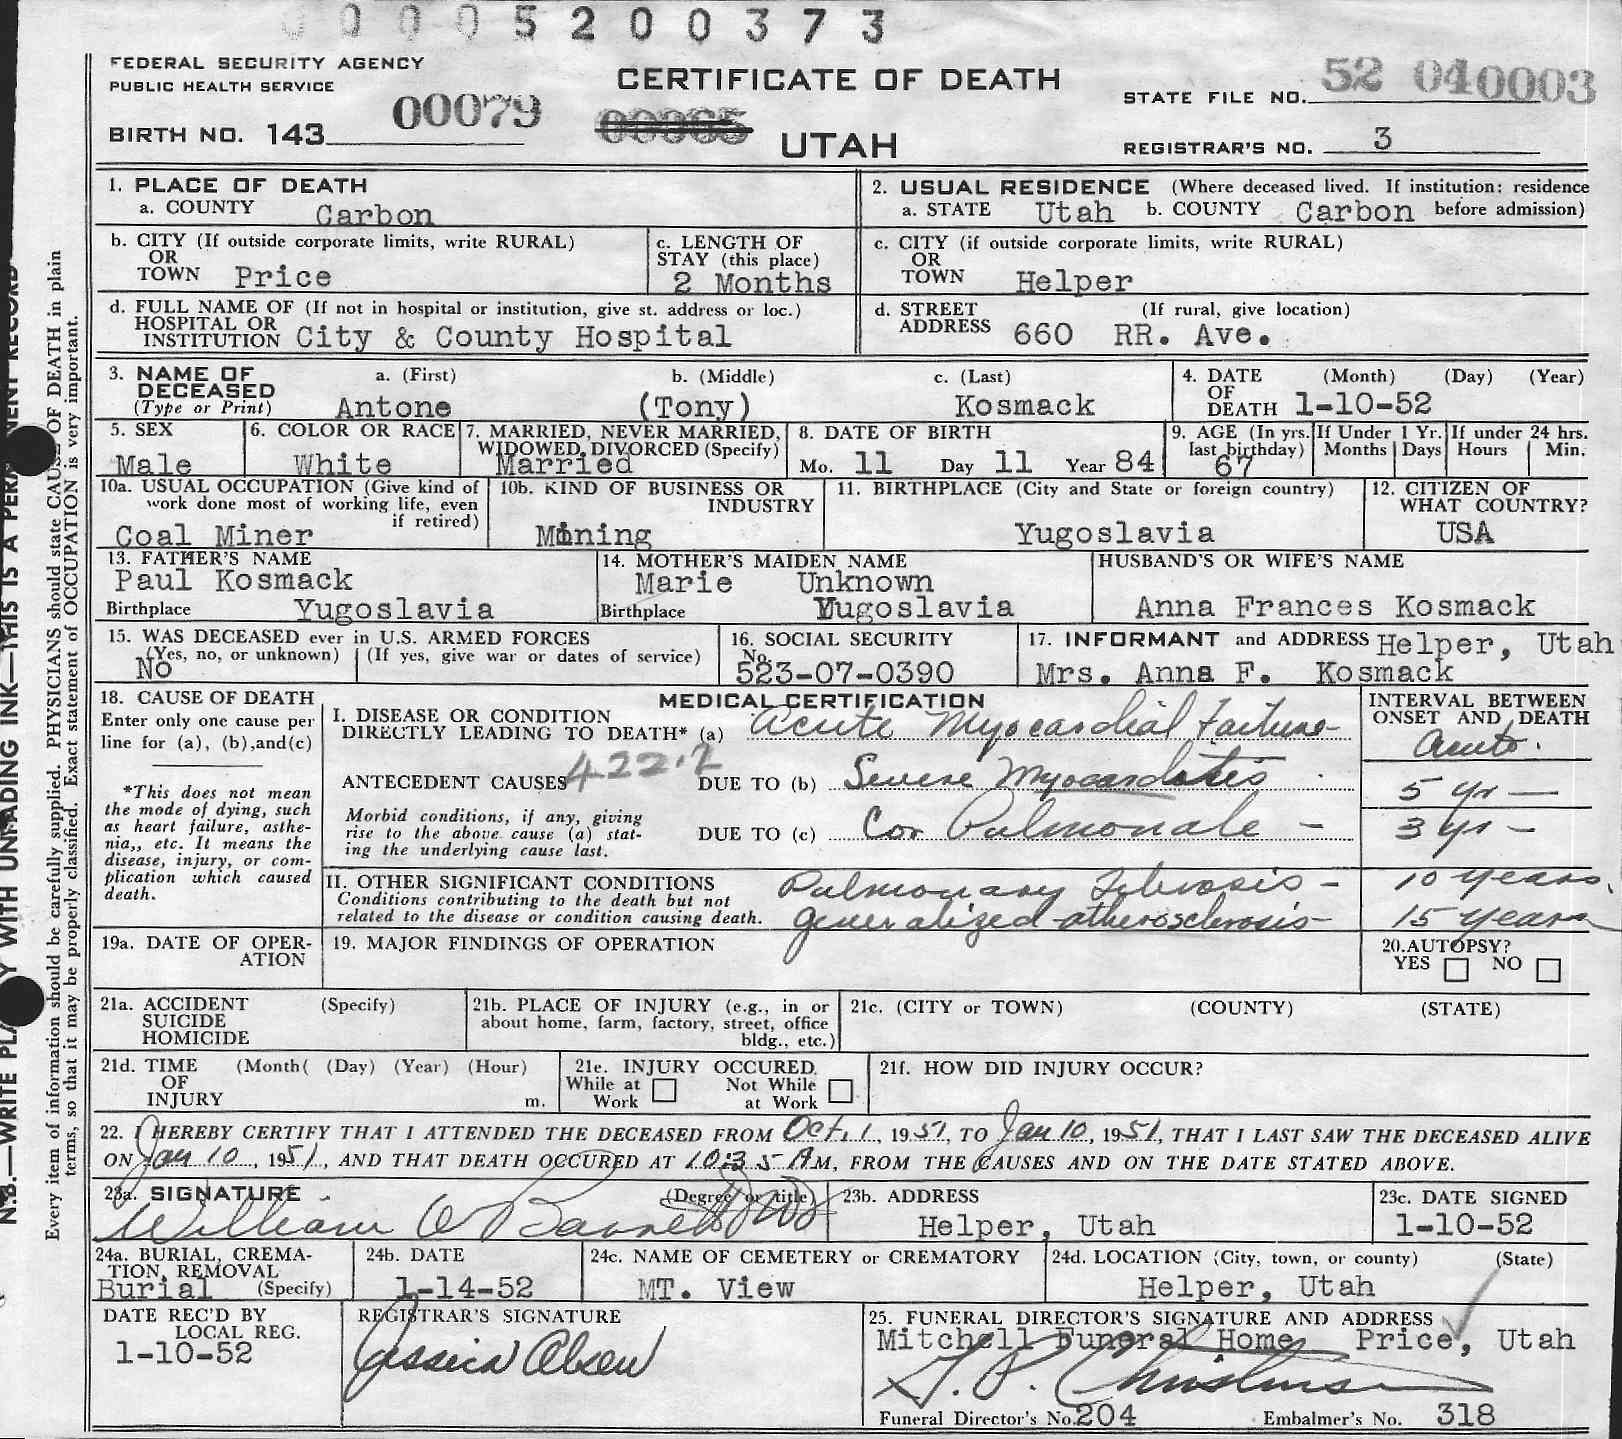 0005200373
FEDERAL SECURITY AGENCY
PUBLIC HEALTH SERVICE
CERTIFICATE OF DEATH
STATE FILE NO. 52 040003
BIRTH NO. 143 00079 00365
UTAH
REGISTRAR'S NO. 3
N.B.—WRITE PLA Y WITH UNFADING INK—THIS IS A PERM NENT RECORD
Every item of information should be carefully supplied. PHYSICIANS should state CAUSE OF DEATH in plain
terms, so that it may be properly classified. Exact statement of OCCUPATION is very important.
1. PLACE OF DEATH
a. COUNTY Carbon
2. USUAL RESIDENCE (Where deceased lived. If institution: residence
a. STATE Utah b. COUNTY Carbon before admission)
b. CITY (If outside corporate limits, write RURAL)
OR
TOWN Price
c. LENGTH OF
STAY (this place)
2 Months
c. CITY (if outside corporate limits, write RURAL)
OR
TOWN Helper
d. FULL NAME OF (If not in hospital or institution, give st. address or loc.)
HOSPITAL OR
INSTITUTION City & County Hospital
d. STREET (If rural, give location)
ADDRESS 660 RR. Ave.
3. NAME OF a. (First) b. (Middle) c. (Last)
DECEASED
(Type or Print) Antone (Tony) Kosmack
4. DATE (Month) (Day) (Year)
OF
DEATH 1-10-52
5. SEX
Male
6. COLOR OR RACE
White
7. MARRIED, NEVER MARRIED,
WIDOWED, DIVORCED (Specify)
Married
8. DATE OF BIRTH
Mo. 11 Day 11 Year 84
9. AGE (In yrs.
last birthday)
67
If Under 1 Yr.
Months Days
If under 24 hrs.
Hours Min.
10a. USUAL OCCUPATION (Give kind of
work done most of working life, even
if retired)
Coal Miner
10b. KIND OF BUSINESS OR
INDUSTRY
Mining
11. BIRTHPLACE (City and State or foreign country)
Yugoslavia
12. CITIZEN OF
WHAT COUNTRY?
USA
13. FATHER'S NAME
Paul Kosmack
Birthplace Yugoslavia
14. MOTHER'S MAIDEN NAME
Marie Unknown
Birthplace Yugoslavia
HUSBAND'S OR WIFE'S NAME
Anna Frances Kosmack
15. WAS DECEASED ever in U.S. ARMED FORCES
(Yes, no, or unknown) (If yes, give war or dates of service)
No
16. SOCIAL SECURITY
No.
523-07-0390
17. INFORMANT and ADDRESS Helper, Utah
Mrs. Anna F. Kosmack
18. CAUSE OF DEATH
Enter only one cause per
line for (a), (b),and(c)
*This does not mean
the mode of dying, such
as heart failure, asthe-
nia,, etc. It means the
disease, injury, or com-
plication which caused
death.
MEDICAL CERTIFICATION
I. DISEASE OR CONDITION
DIRECTLY LEADING TO DEATH* (a) Acute Myocardial Failure-
ANTECEDENT CAUSES 422.2 DUE TO (b) Severe Myocarditis
Morbid conditions, if any, giving
rise to the above cause (a) stat-
ing the underlying cause last.
DUE TO (c) Cor Pulmonale -
II. OTHER SIGNIFICANT CONDITIONS
Conditions contributing to the death but not
related to the disease or condition causing death.
Pulmonary Fibrosis -
generalized atherosclerosis-
INTERVAL BETWEEN
ONSET AND DEATH
acute.
5 yr —
3 yr -
10 years.
15 years
19a. DATE OF OPER-
ATION
19. MAJOR FINDINGS OF OPERATION
20.AUTOPSY?
YES NO
21a. ACCIDENT (Specify)
SUICIDE
HOMICIDE
21b. PLACE OF INJURY (e.g., in or
about home, farm, factory, street, office
bldg., etc.)
21c. (CITY or TOWN) (COUNTY) (STATE)
21d. TIME (Month( (Day) (Year) (Hour)
OF
INJURY m.
21e. INJURY OCCURED.
While at Not While
Work at Work
21f. HOW DID INJURY OCCUR?
22. I HEREBY CERTIFY THAT I ATTENDED THE DECEASED FROM Oct, 1, 1951, TO Jan 10, 1951, THAT I LAST SAW THE DECEASED ALIVE
ON Jan 10, 1951, AND THAT DEATH OCCURED AT 10:35 AM, FROM THE CAUSES AND ON THE DATE STATED ABOVE.
23a. SIGNATURE (Degree or title)
William O Barrett MD
23b. ADDRESS
Helper, Utah
23c. DATE SIGNED
1-10-52
24a. BURIAL, CREMA-
TION, REMOVAL
Burial (Specify)
24b. DATE
1-14-52
24c. NAME OF CEMETERY or CREMATORY
MT. View
24d. LOCATION (City, town, or county) (State)
Helper, Utah
DATE REC'D BY
LOCAL REG.
1-10-52
REGISTRAR'S SIGNATURE
Jessica Olsen
25. FUNERAL DIRECTOR'S SIGNATURE AND ADDRESS
Mitchell Funeral Home Price, Utah
Funeral Director's No. 204 Embalmer's No. 318